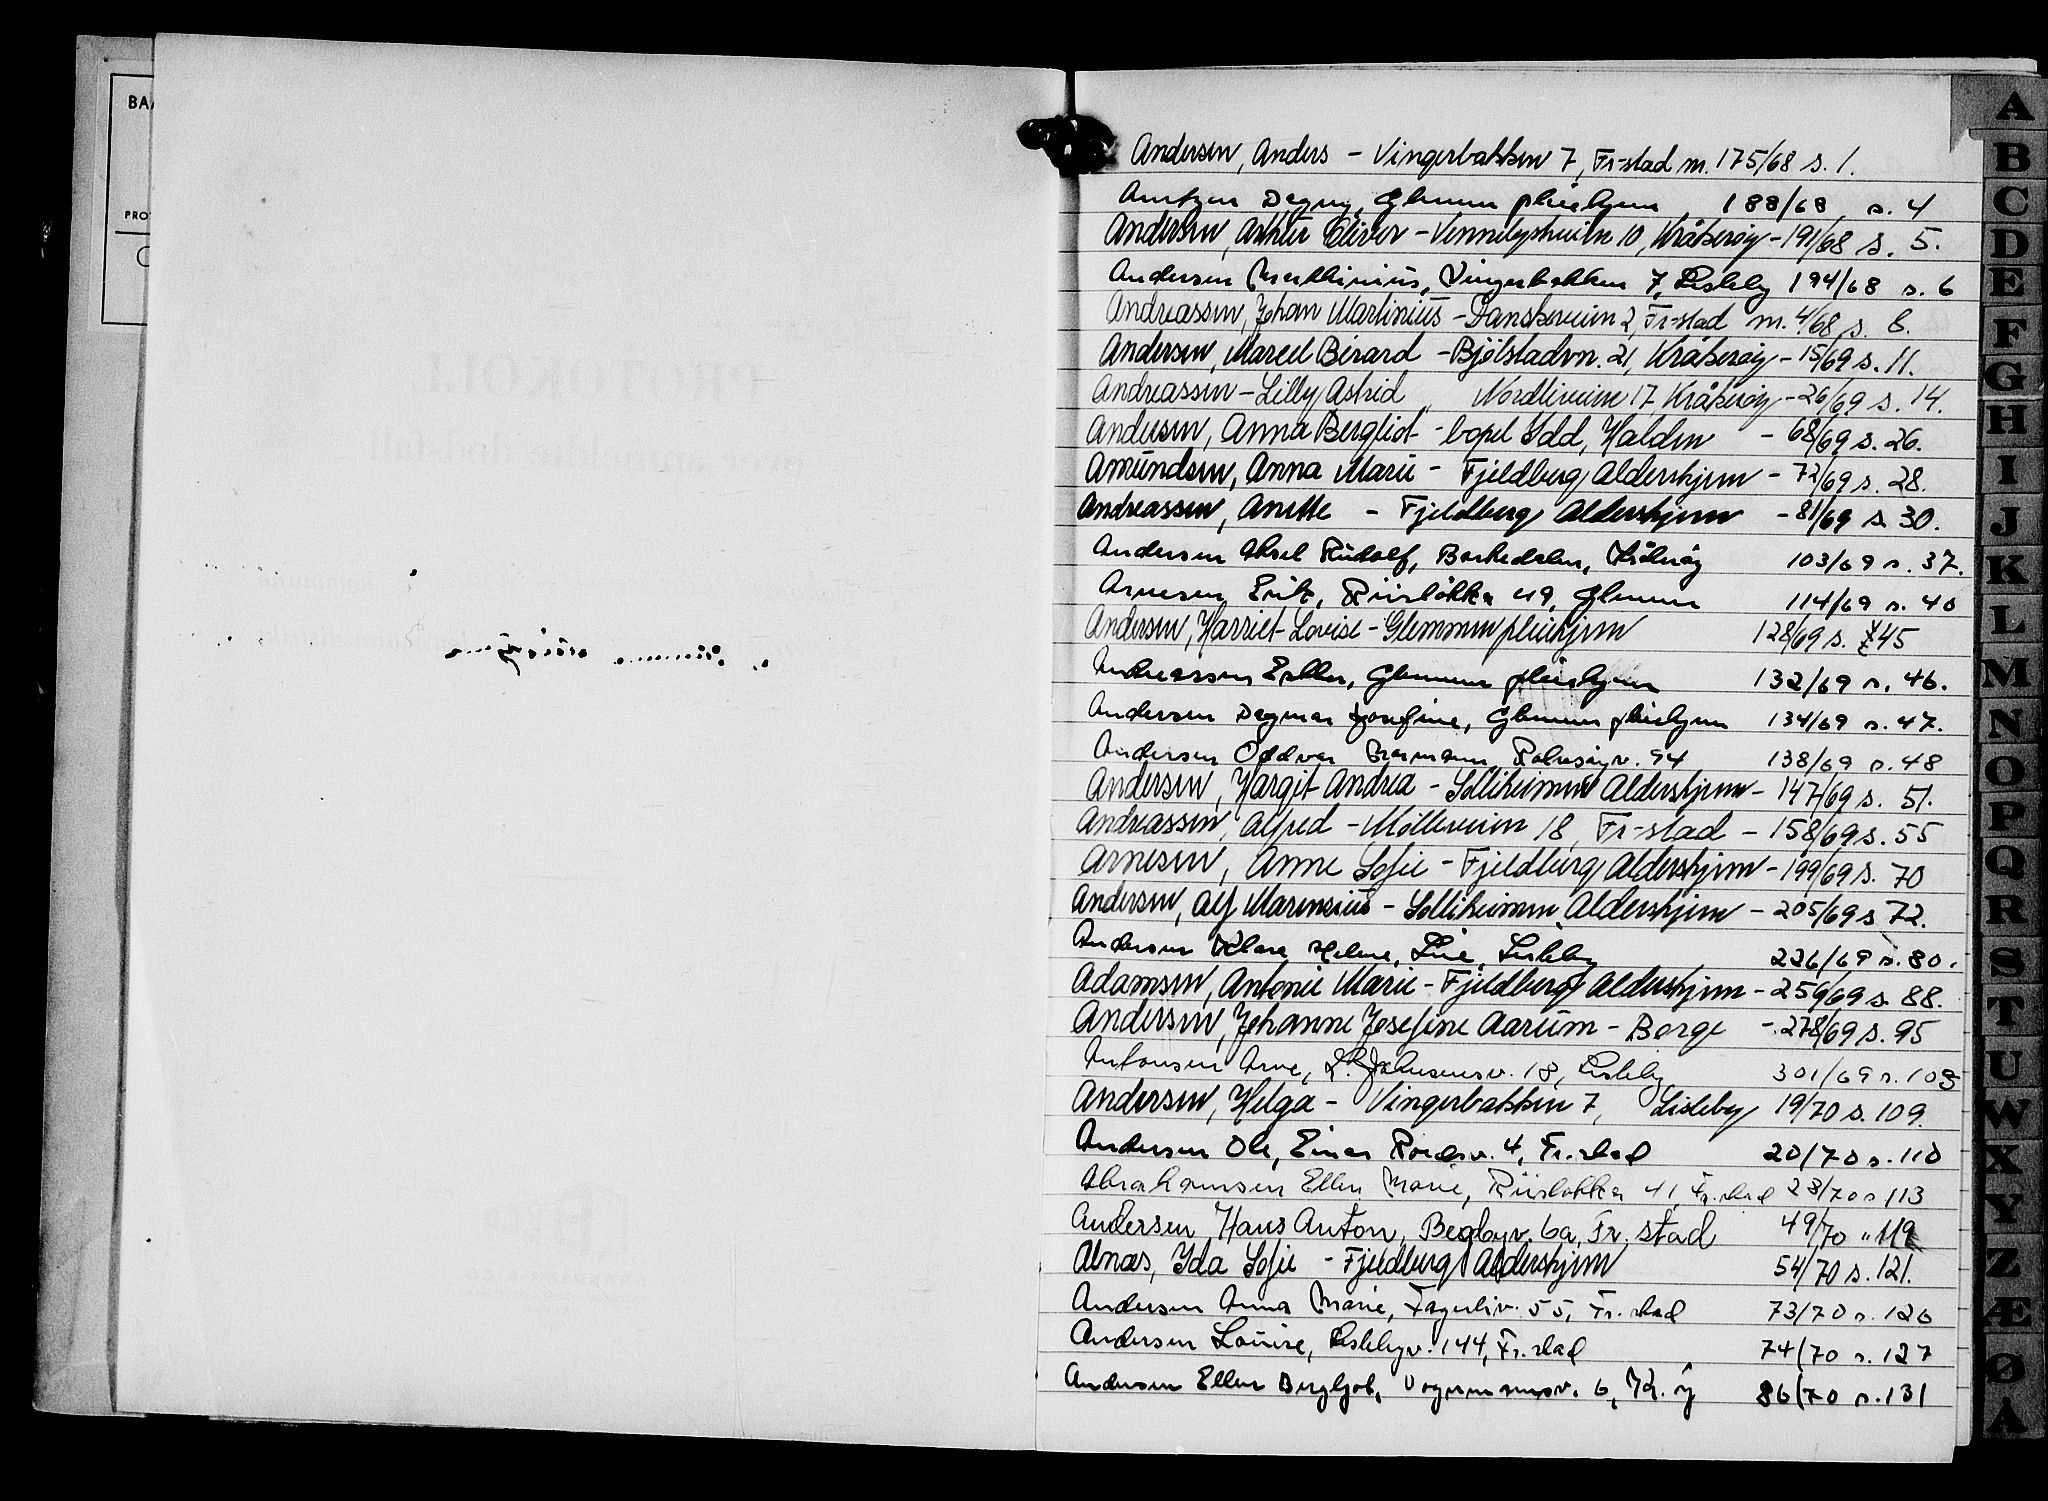 BA
PRO
Andersen, Anders - Vingerbakken 7, Fr-stad m. 175/68 s. 1.
Arntzen Dagny, Glemmen pleiehjem 188/68, s. 4
Andersen, Arthur Oliver - Vennelystveien 10, Kråkerøy - 191/68 s. 5.
Andersen Marthinius, Vingerbakken 7, Lisleby 194/68 s. 6
Andreassen, Johan Martinius - Danskeveien 2, Fr-stad m. 4/68 s. 8.
Andersen, Marcel Berard - Bjølstadvn. 21, Kråkerøy - 15/69 s. 11.
Andreassen - Lilly Astrid Nordliveien 17 Kråkerøy - 26/69 s. 14.
Andersen, Anna Bergliot - bopel Idd, Halden - 68/69 s. 26.
Amundsen, Anna Marie - Fjeldberg Aldershjem - 72/69 s. 28.
Andreassen, Anette - Fjeldberg Aldershjem - 81/69 s. 30.
Andersen Aksel Rudolf, Barkedalen, Kråkerøy 103/69 s. 37.
Arnesen Erik, Riisløkka 49, Glemmen 114/69 s. 40
Andersen, Harriet Lovise - Glemmen pleiehjem 128/69 s. 45
Andreassen Esther, Glemmen pleiehjem 132/69 s. 46.
Andersen Dagmar Josefine, Glemmen pleiehjem 134/69 s. 47.
Andersen Oddvar Normann, Rolvsøyv. 94 138/69 s. 48
Andersen, Margit Andrea - Solliheimen Aldershjem - 147/69 s. 51.
Andreassen, Alfred - Mølleveien 18, Fr-stad - 158/69 s. 55
Arnesen, Anne Sofie - Fjeldberg Aldershjem - 199/69 s. 70
Andersen, Alf Marensius - Solliheimen Aldershjem - 205/69 s 72.
Andersen Klara Helene, Lie, Lisleby 226/69 s. 80.
Adamsen, Antonie Marie - Fjeldberg Aldershjem - 259/69 s. 88.
Andersen, Johanne Josefine Aarum - Borge - 278/69 s. 95
Antonsen Arne, L. Johnsensv. 18, Lisleby 301/69 s. 105
Andersen, Helga - Vingerbakken 7, Lisleby 19/70 s. 109.
Andersen Ole, Einar Roedsv. 4, Fr.stad 20/70 s. 110
Abrahamsen Ellen Marie, Riisløkka 41, Fr.stad 28/70 s 113
Andersen, Hans Anton, Begbyv. 6a, Fr. stad 49/70 " 119
Alnæs, Ida Sofie - Fjeldberg Aldershjem 54/70 s. 121.
Andersen Anna Marie, Fagerliv. 55, Fr.stad 73/70 s. 126
Andersen Louise, Lislebyv. 144, Fr.stad 74/70 s. 127
Andersen Ellen Bergljot, 6, Kr.øy 86/70 s. 131
A
B
C
D
E
F
G
H
I
J
K
L
M
N
O
P
Q
R
S
T
U
W
X
Y
Z
Æ
Ø
Å